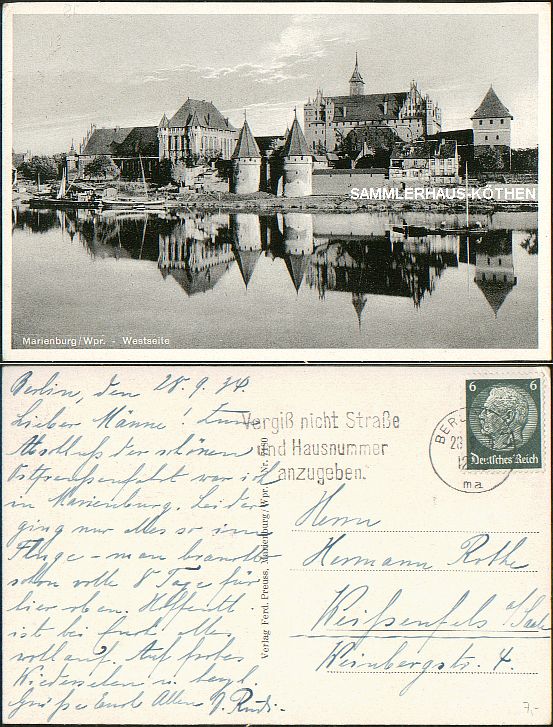 SAMMLERHAUS-KÖTHEN
Marienburg/Wpr. - Westseite
Berlin, den 28.9.34.
Lieber Männe! Zum
Abschluß der schönen
Ostpreussenfahrt war ich
in Marienburg. Leider
ging nur alles so im
Fluge - man brauchte
schon volle 8 Tage für
hier oben. Hoffentl.
ist bei Euch alles
wohlauf. Auf frohes
Wiedersehen u. herzl.
Grüße Euch Allen Rudi.
Verlag Ferd. Preuss, Marienburg/Wpr.
Vergiß nicht Straße
und Hausnummer
anzugeben.
BER
6 6
Deutsches Reich
Herrn
Hermann Rothe
Weißenfels a/Saale
Weinbergstr. 4.
7,-